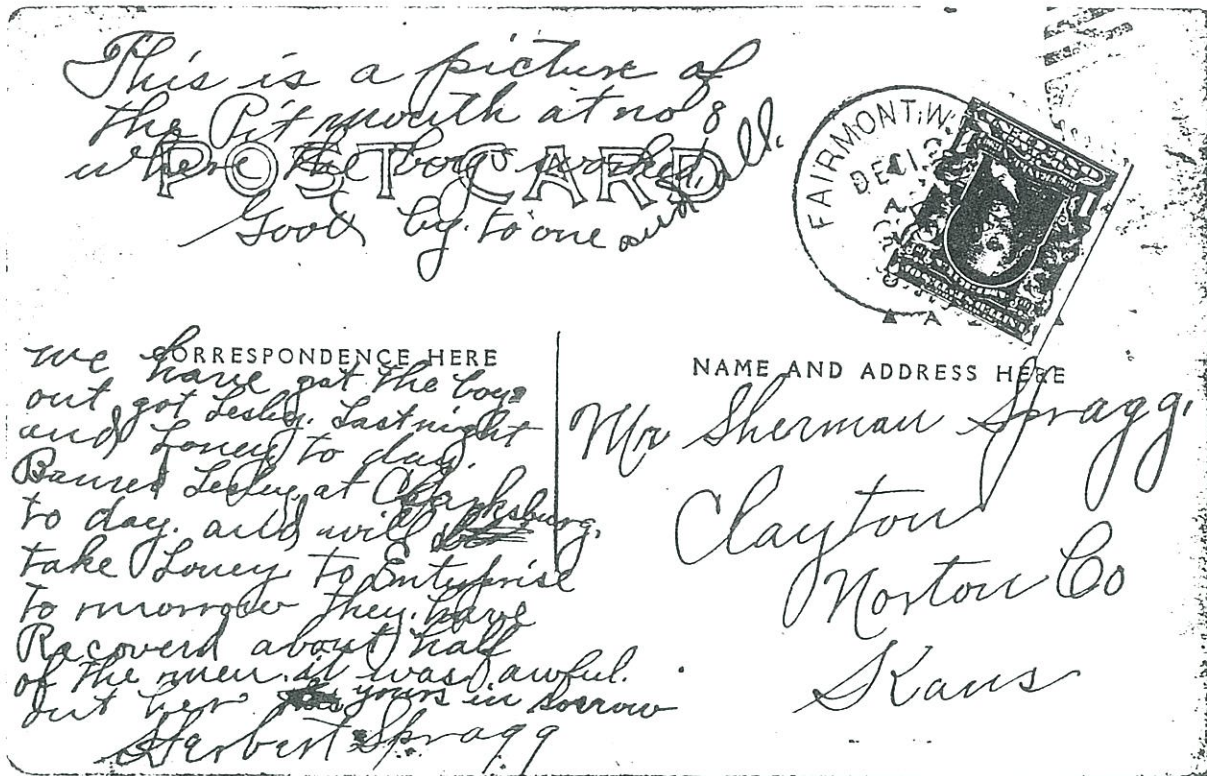 This is a picture of
the Pit mouth at no 8
where the boys worked.
Good by. to one and all.
POST CARD
FAIRMONT, W.
DEC 12
CORRESPONDENCE HERE
we have got the boys
out got Lesley. Last night
and Loney to day.
Buried Lesley at Clarksburg.
to day. and will
take Loney to Enterprise
to morrow they. have
Racoverd about half
of the men. it was awful.
out her yours in sorrow
Herbert Spragg
NAME AND ADDRESS HERE
Mr Sherman Spragg,
Clayton
Norton Co
Kans